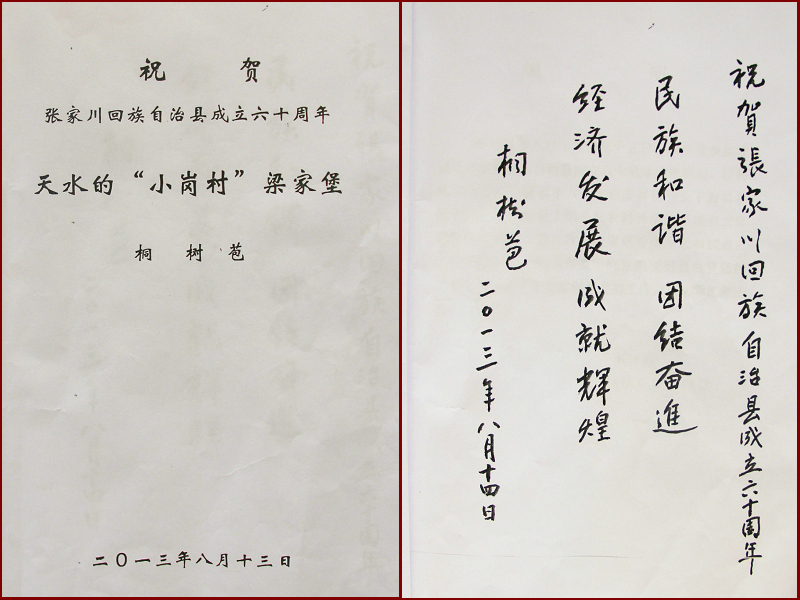 祝 贺
张家川回族自治县成立六十周年
天水的“小岗村”梁家堡
桐 树 苞
二〇一三年八月十三日
祝賀張家川回族自治县成立六十周年
民族和谐 团结奋進
经济发展成就辉煌
桐树苞
二〇一三年八月十四日